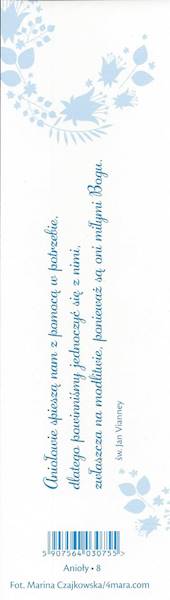 Aniołowie spieszą nam z pomocą w potrzebie,
dlatego powinniśmy jednoczyć się z nimi,
zwłaszcza na modlitwie, ponieważ są oni miłymi Bogu.
św. Jan Vianney
5 907564 030755 >
Anioły • 8
Fot. Marina Czajkowska/4mara.com